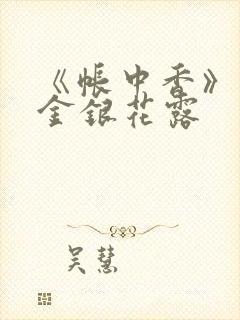 《帐中香》
金银花露
吴慧